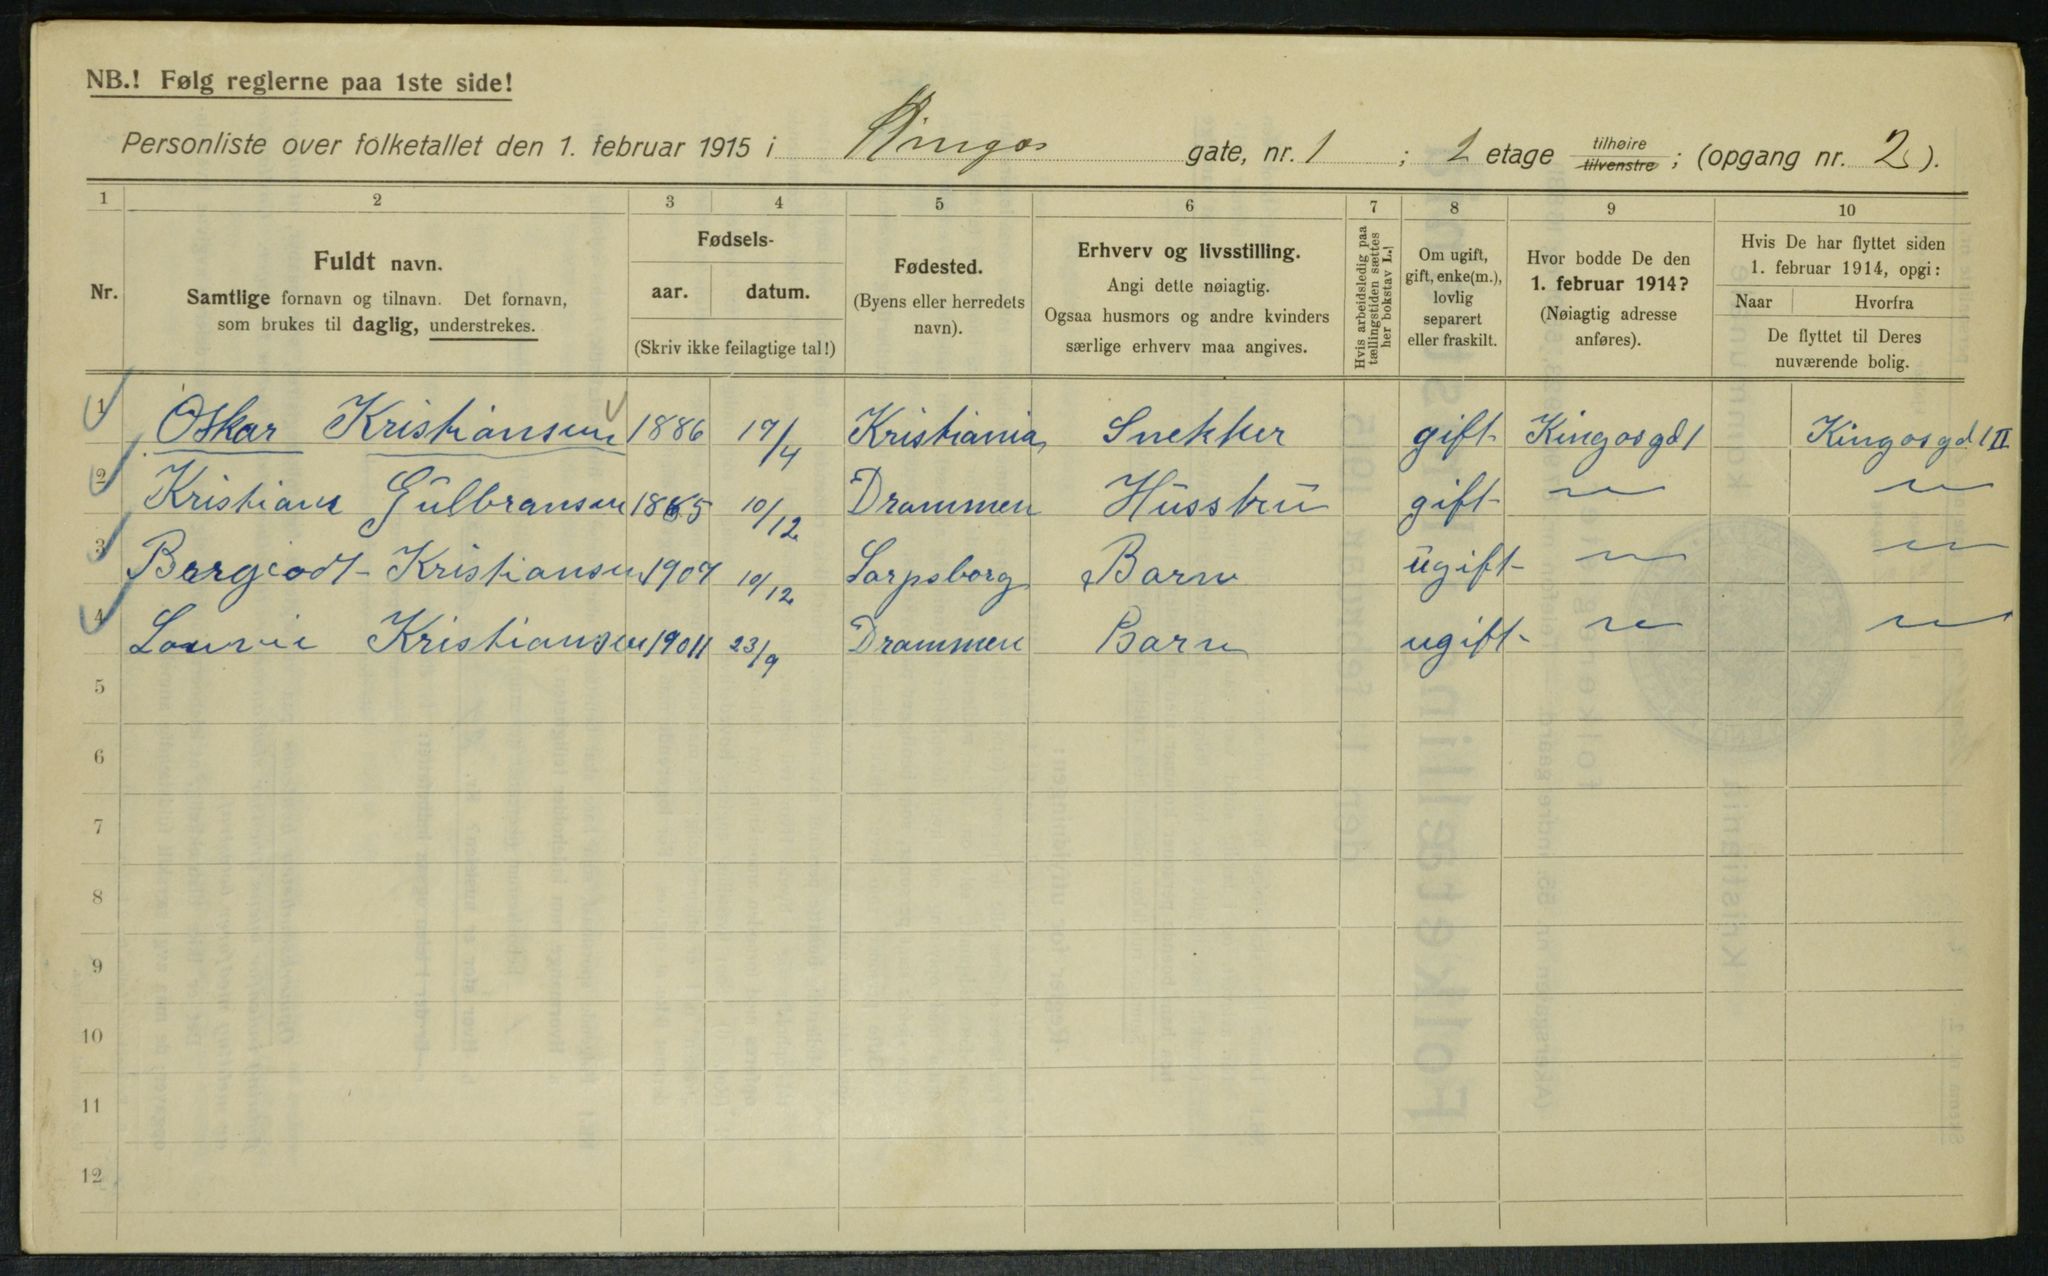 NB.! Følg reglerne paa 1ste side!
Personliste over folketallet den 1. februar 1915 i Kingos gate, nr. 1 ; 2 etage tilhøire tilvenstre ; (opgang nr. 2).
1 2 3 4 5 6 7 8 9 10
Nr.
Fuldt navn.
Samtlige fornavn og tilnavn. Det fornavn,
som brukes til daglig, understrekes.
Fødsels-
aar. datum.
(Skriv ikke feilagtige tal!)
Fødested.
(Byens eller herredets
navn).
Erhverv og livsstilling.
Angi dette nøiagtig.
Ogsaa husmors og andre kvinders
særlige erhverv maa angives.
Hvis arbeidsledig paa
tællingstiden sættes
her bokstav L.!
Om ugift,
gift, enke(m.),
lovlig
separert
eller fraskilt.
Hvor bodde De den
1. februar 1914?
(Nøiagtig adresse
anføres).
Hvis De har flyttet siden
1. februar 1914, opgi:
Naar Hvorfra
De flyttet til Deres
nuværende bolig.
1 Oskar Kristiansen 1886 17/4 Kristiania Snekker gift Kingosgd 1 Kingosgd 1 II
2 Kristiane Gulbransen 1885 10/12 Drammen Hustru gift — " — — " —
3 Kristiansen 1907 10/12 Sarpsborg Barn ugift — " — — " —
4 Kristiansen 19011 23/9 Drammen Barn ugift — " — — " —
5
6
7
8
9
10
11
12